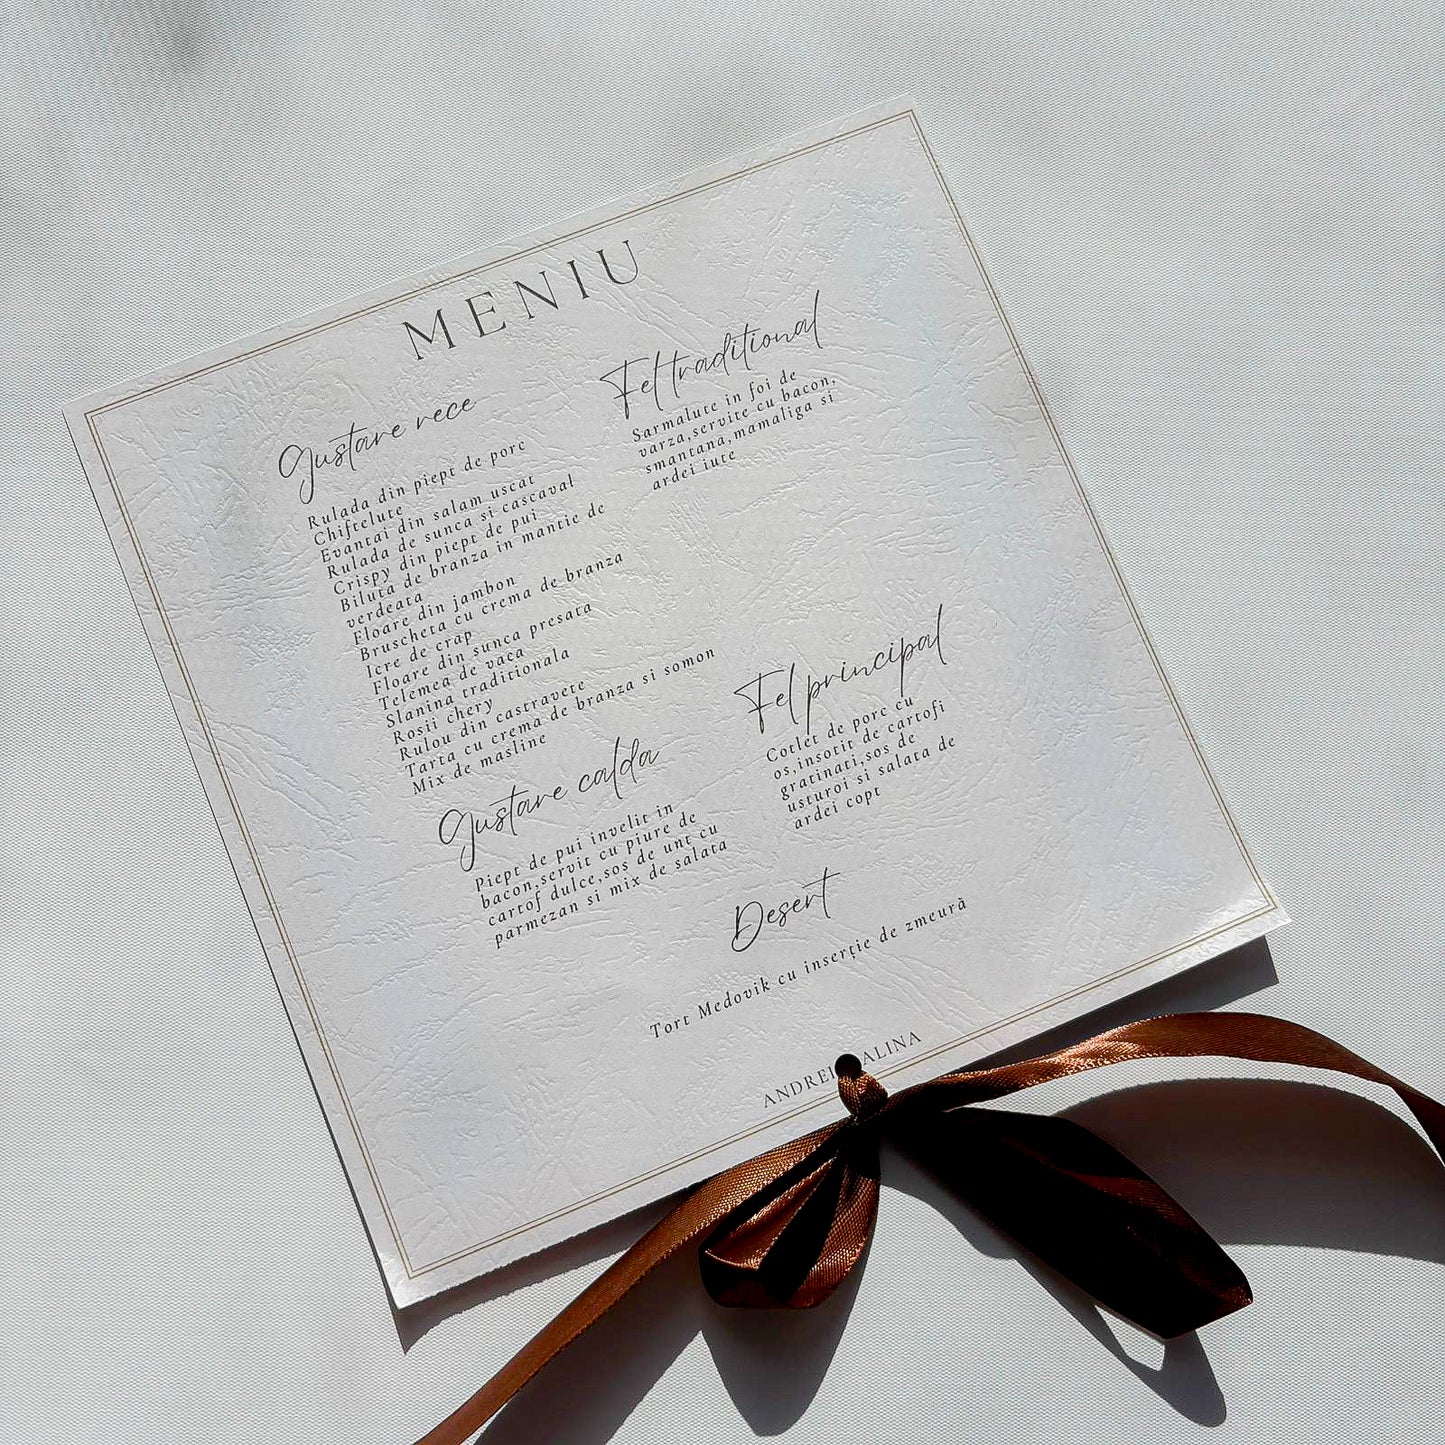 MENIU
Gustare rece
Rulada din piept de porc
Chiftelute
Evantai din salam uscat
Rulada de sunca si cascaval
Crispy din piept de pui
Biluta de branza in mantie de
verdeata
Floare din jambon
Bruscheta cu crema de branza
Icre de crap
Floare din sunca presata
Telemea de vaca
Slanina traditionala
Rosii chery
Rulou din castravete
Tarta cu crema de branza si somon
Mix de masline
Gustare calda
Piept de pui invelit in
bacon,servit cu piure de
cartof dulce,sos de unt cu
parmezan si mix de salata
Fel traditional
Sarmalute in foi de
varza,servite cu bacon,
smantana,mamaliga si
ardei iute
Fel principal
Cotlet de porc cu
os,insotit de cartofi
gratinati,sos de
usturoi si salata de
ardei copt
Desert
Tort Medovik cu inserție de zmeură
ANDREI ALINA